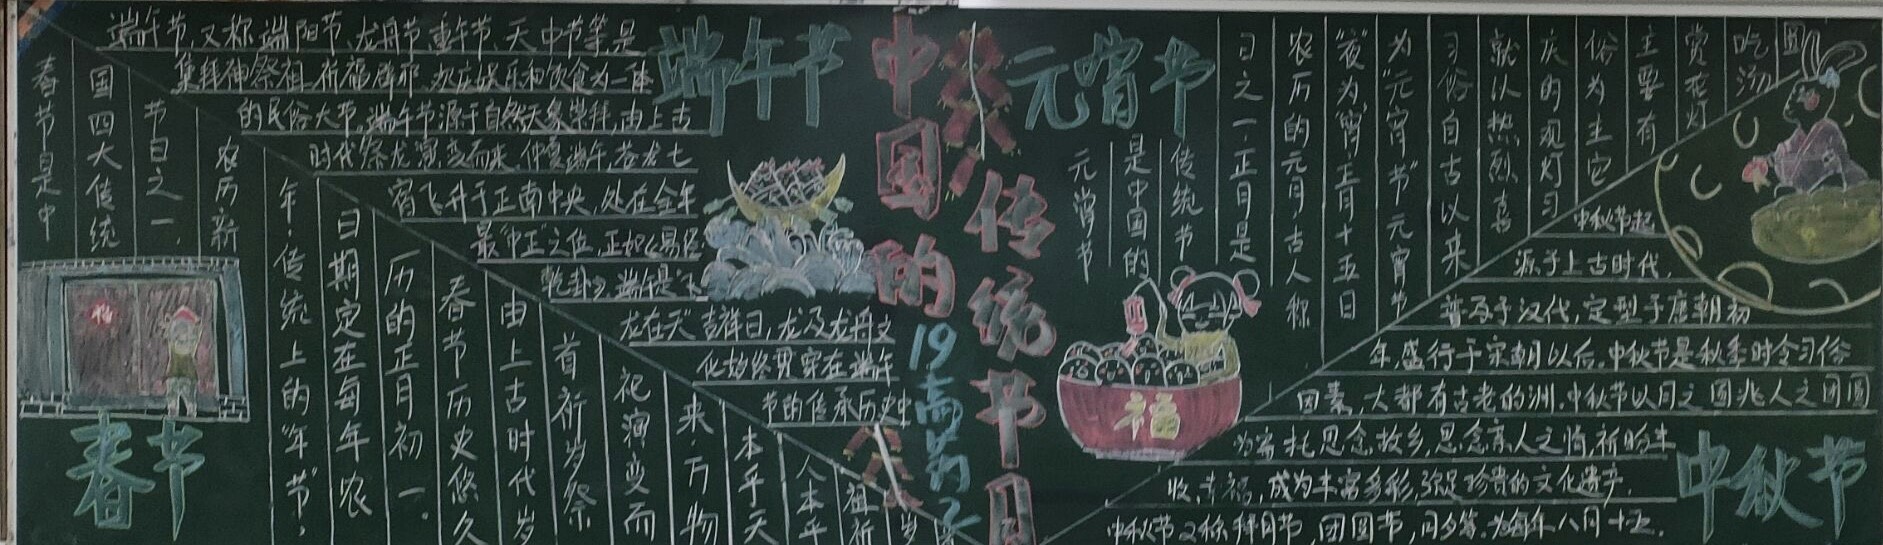 中国的
传统节日
端午节
端午节,又称端阳节、龙舟节、重午节、天中节等,是
集拜神祭祖、祈福辟邪、欢庆娱乐和饮食为一体
的民俗大节。端午节源于自然天象崇拜,由上古
时代祭龙演变而来。仲夏端午,苍龙七
宿飞升于正南中央,处在全年
最“中正”之位,正如《易经
龙在天”吉祥日,龙及龙舟文
化始终贯穿在端午
节的传承历史中
春节
春节是中
国四大传统
节日之一,
农历新
年,传统上的“年节”,
日期定在每年农
历的正月初一。
春节历史悠久
由上古时代岁
首祈岁祭
祀演变而
来,万物
本乎天
人本乎
祖祈
岁
元宵节
元宵节
是中国的
传统节
日之一,正月是
农历的元月,古人称
“夜”为“宵”,正月十五日
为“元宵节”元宵节
习俗自古以来
就以热烈喜
庆的观灯习
俗为主,它
主要有
赏花灯
吃汤圆
中秋节
中秋节起
源于上古时代,
普及于汉代,定型于唐朝初
年,盛行于宋朝以后。中秋节是秋季时令习俗
因素,大都有古老的洲。中秋节以月之圆兆人之团圆
为寄托思念故乡,思念亲人之情,祈盼丰
收、幸福,成为丰富多彩,弥足珍贵的文化遗产。
中秋节又称拜月节,团圆节,月夕等,为每年八月十五。
福
福